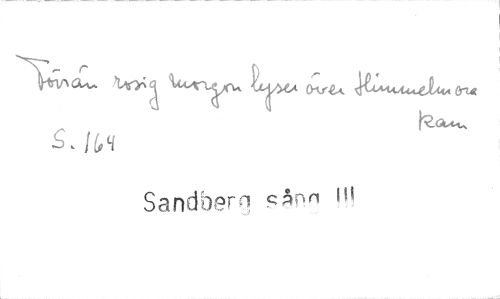 Förrän rosig morgon lyser över Himmelmora
kam
S. 164
Sandberg sång III